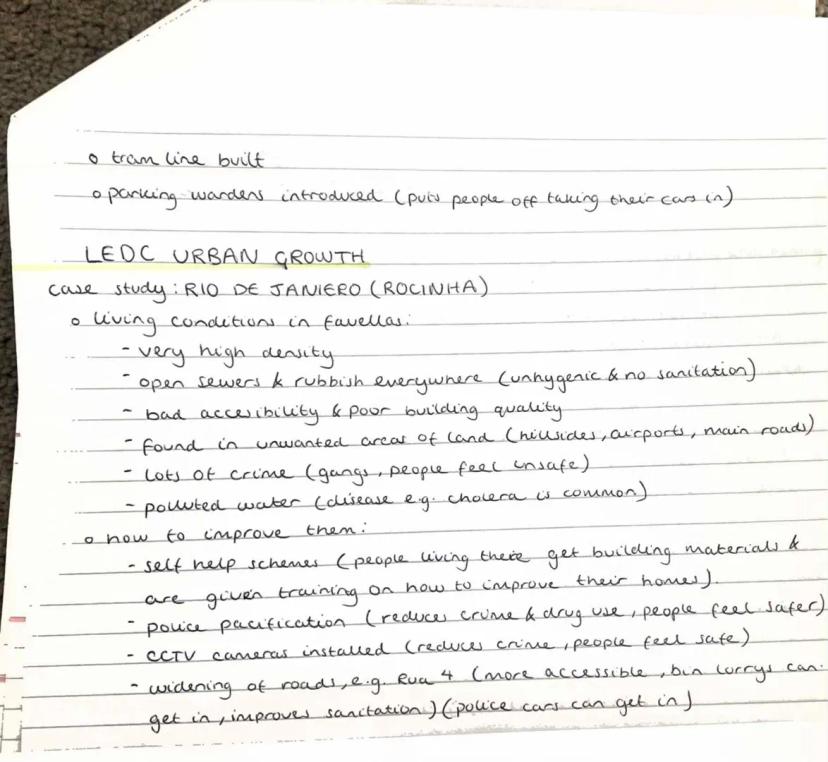 o tram line built
o parking wardens introduced (puts people off taking their cars in)
LEDC URBAN GROWTH
case study: RIO DE JANIERO (ROCINHA)
o living conditions in favellas:
- very high density
- open sewers & rubbish everywhere (unhygenic & no sanitation)
- bad accesibility & poor building quality
- found in unwanted areas of land (hillsides, airports, main roads)
- lots of crime (gangs, people feel unsafe)
- polluted water (disease e.g. cholera is common)
o how to improve them:
- self help schemes (people living there get building materials &
are given training on how to improve their homes).
- police pacification (reduces crime & drug use, people feel safer)
- CCTV cameras installed (reduces crime, people feel safe)
- widening of roads, e.g. Rua 4 (more accessible, bin lorrys can
get in, improves sanitation) (police cars can get in)